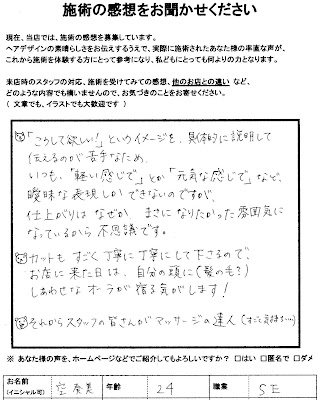 施術の感想をお聞かせください
現在、当店では、施術の感想を募集しています。
ヘアデザインの素晴らしさをお伝えするうえで、実際に施術されたあなた様の率直な声が、
これから施術を体験する方にとって参考になり、私どもにとっても何よりの力となります。
来店時のスタッフの対応、施術を受けてみての感想、他のお店との違い など、
どのような内容でも構いませんので、お気づきのことをお寄せください。
( 文章でも、イラストでも大歓迎です )
「こうして欲しい!」というイメージを、具体的に説明して
伝えるのが苦手なため、
いつも、「軽い感じで」とか「元気な感じで」など、
曖昧な表現しかできないのですが、
仕上がりは なぜか、まさになりたかった雰囲気に
なっているから 不思議です。
カットも すごく丁寧に丁寧にして下さるので、
お店に来た日は、自分の頭に(髪の毛?)
しあわせな オーラが 宿る気がします!
それからスタッフの皆さんが マッサージの達人
※ あなた様の声を、ホームページなどでご紹介してもよろしいですか? □はい □匿名で □ダメ
お名前 年齢 24 職業 SE
(イニシャル可)